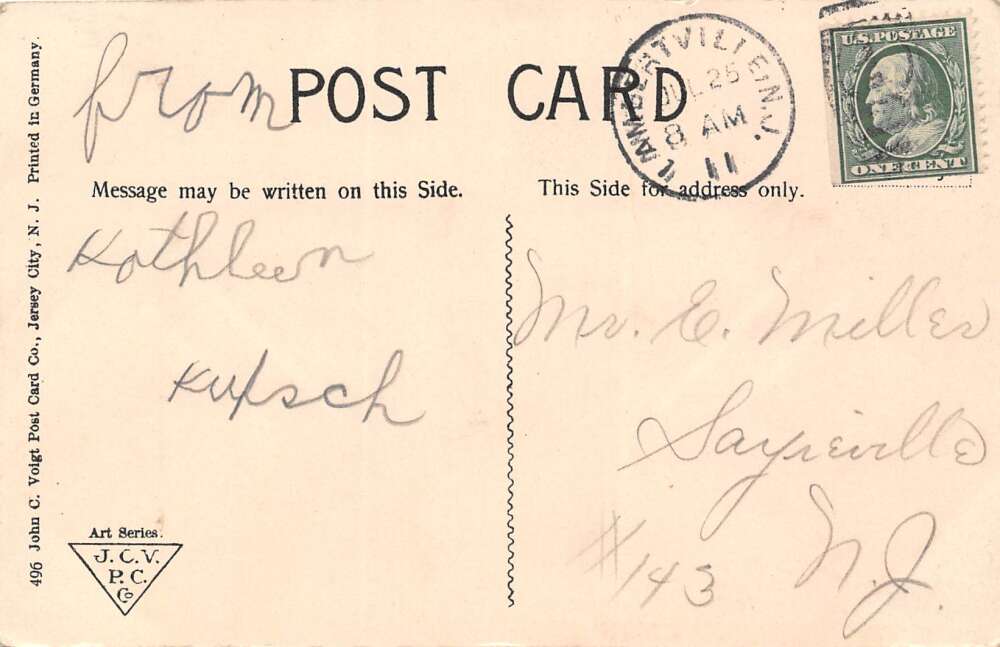 496 John C. Voigt Post Card Co., Jersey City, N. J. Printed in Germany.
from
POST CARD
LAMBERTVILLE N.J.
JUL 25
8 AM
11
U.S. POSTAGE
ONE CENT
Message may be written on this Side.
This Side for address only.
Kathleen
Mr. E. Miller
Sayreville
#143
N.J.
Art Series.
J. C. V.
P. C.
Co